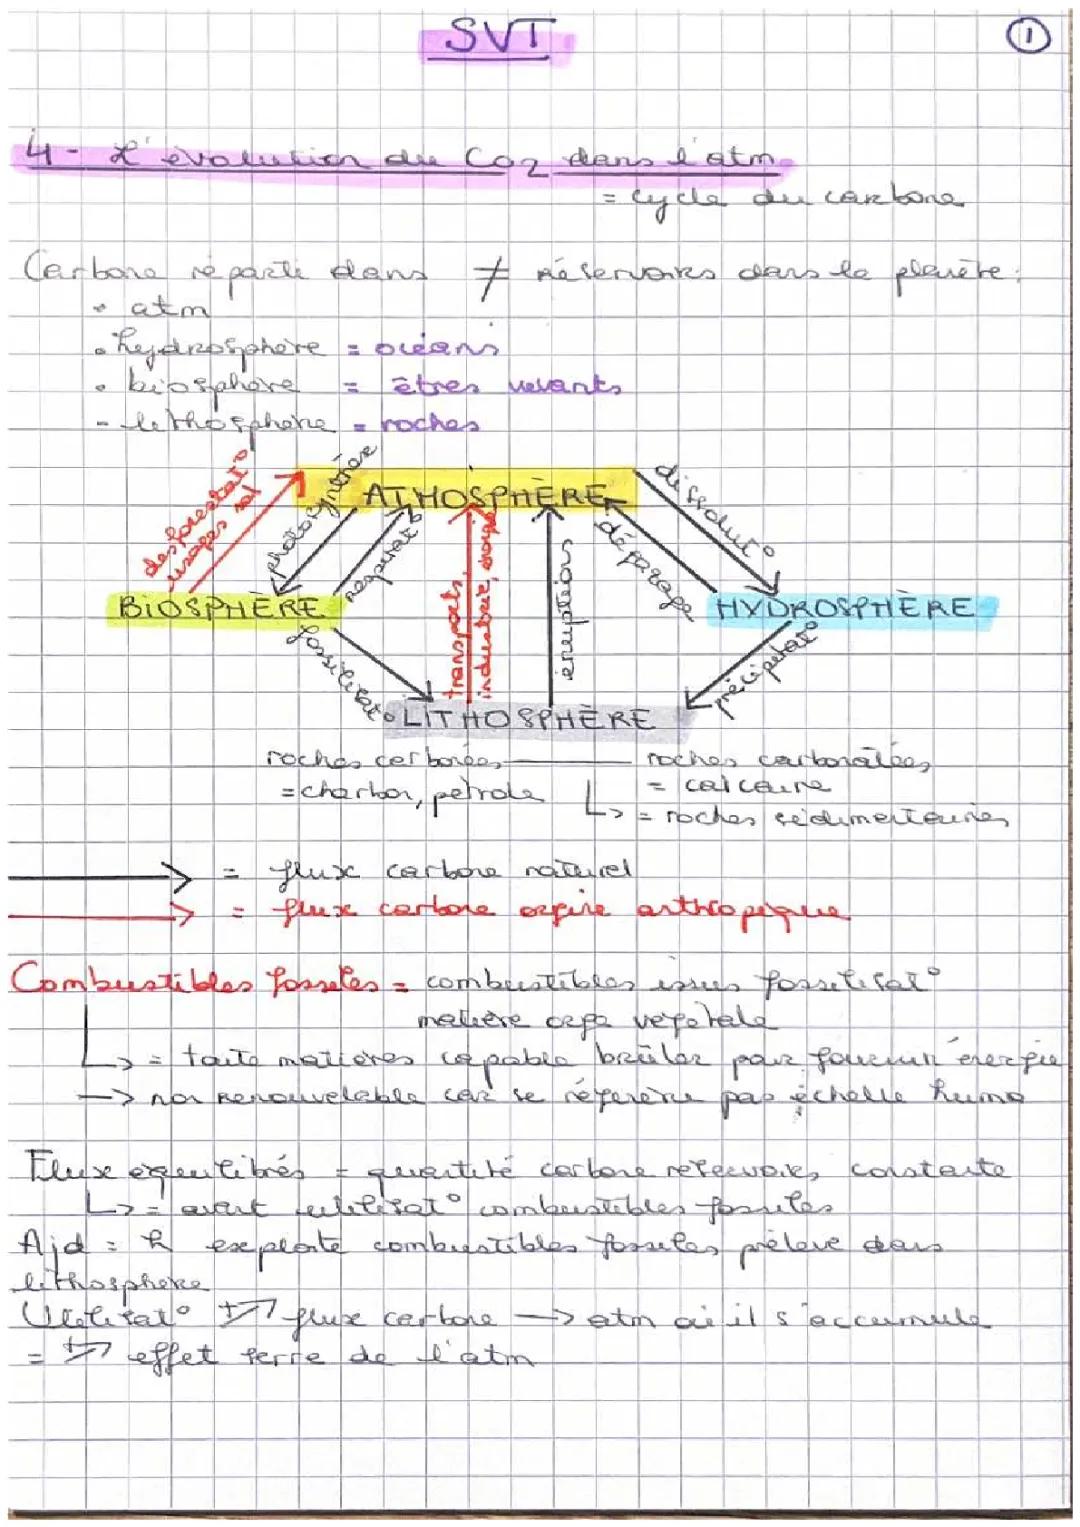 SVT
1
4 - L'évolution du CO2 dans l'atm
= cycle du carbone
Carbone réparti dans ≠ réservoirs dans la planète :
• atm
• hydrosphère = océans
• biosphère = êtres vivants
- lithosphère = roches
desforestat°
usages sol
photosynthèse
ATMOSPHÈRE
dissolut°
respirat°
transports,
industrie, énergie
éruptions
dégazage
BIOSPHÈRE
HYDROSPHÈRE
fossilisat°
précipitat°
LITHOSPHÈRE
roches carbonées
roches carbonatées
= charbon, pétrole
= calcaire
↳ = roches sédimentaires
→ = flux carbone naturel
→ = flux carbone origine anthropique
Combustibles fossiles = combustibles issus fossilisat°
matière orga végétale
↳ = toute matières capable brûler pour fournir énergie
→ non renouvelable car se régénère pas échelle huma
Flux équilibrés = quantité carbone réservoirs constante
↳ = avant utilisat° combustibles fossiles
Ajd = h exploite combustibles fossiles prélevé dans
lithosphère
Utilisat° +↗ flux carbone → atm où il s'accumule
= +↗ effet serre de l'atm